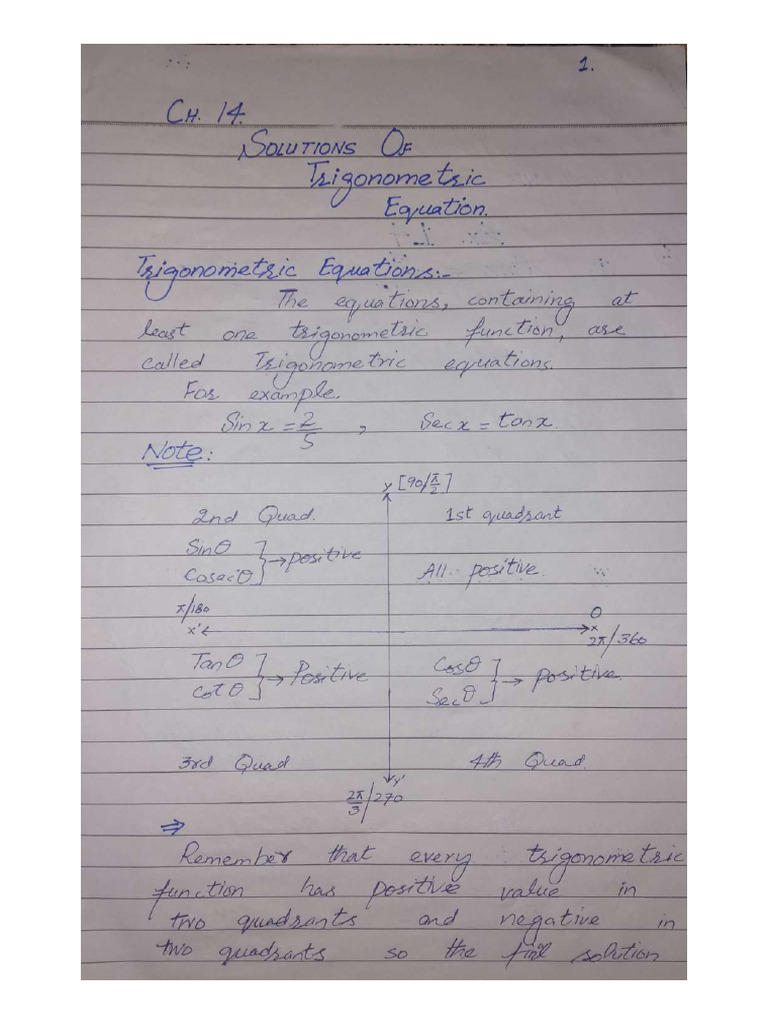 1.
CH. 14.
SOLUTIONS OF
Trigonometric
Equation.
Trigonometric Equations:-
The equations, containing at
least one trigonometric function, are
called Trigonometric equations.
For example.
Sin x = 2/5 , Sec x = tan x.
Note:
y [90/π/2]
2nd Quad. 1st quadrant
Sinθ
Cosecθ } → positive
All positive.
π/180 0
x' x
2π/360
Tanθ
Cotθ } → Positive
Cosθ
Secθ } → positive.
3rd Quad 4th Quad.
y'
2π/3 /270
⇒
Remember that every trigonometric
function has positive value in
two quadrants and negative in
two quadrants so the solution